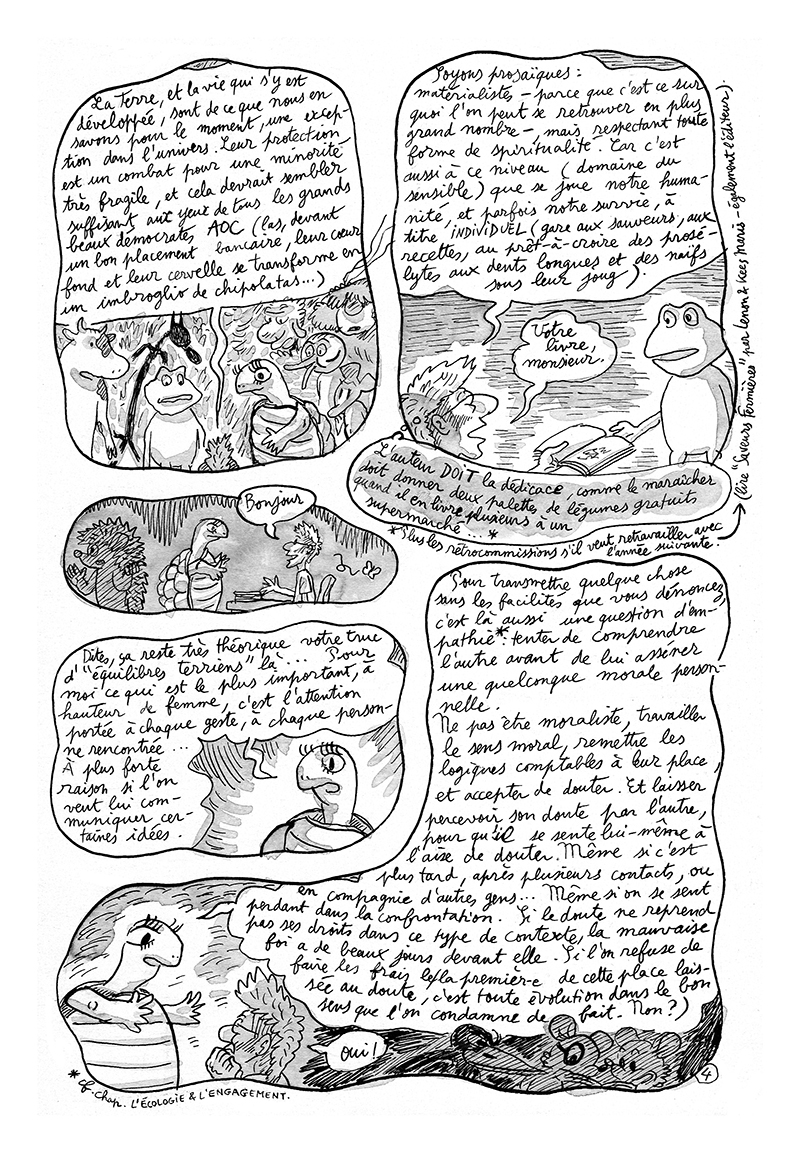 La Terre, et la vie qui s'y est
développée, sont de ce que nous en
savons pour le moment, une excep-
tion dans l'univers. Leur protection
est un combat pour une minorité
très fragile, et cela devrait sembler
suffisant aux yeux de tous les grands
beaux démocrates AOC (las, devant
un bon placement bancaire, leur cœur
fond et leur cervelle se transforme en
un imbroglio de chipolatas...)
Soyons prosaïques :
matérialistes - parce que c'est ce sur
quoi l'on peut se retrouver en plus
grand nombre -, mais respectant toute
forme de spiritualité. Car c'est
aussi à ce niveau (domaine du
sensible) que se joue notre huma-
nité, et parfois notre survie, à
titre INDIVIDUEL (gare aux sauveurs, aux
recettes, au prêt-à-croire des prosé-
lytes aux dents longues et des naïfs
sous leur joug).
Votre
livre,
monsieur.
L'auteur DOIT la dédicace, comme le maraîcher
doit donner deux palettes de légumes gratuits
quand il en livre plusieurs à un
supermarché...*
*Plus les rétrocommissions s'il veut retravailler avec
l'année suivante.
(lire "Saveurs Fermières" par Lenon & Kees Manis - également l'éditeur).
Bonjour
Dites, ça reste très théorique votre truc
d'"équilibres terriens" là... Pour
moi ce qui est le plus important, à
hauteur de femme, c'est l'attention
portée à chaque geste, à chaque person-
ne rencontrée...
À plus forte
raison si l'on
veut lui com-
muniquer cer-
taines idées.
Pour transmettre quelque chose
sans les facilités que vous dénoncez,
c'est là aussi une question d'em-
pathie* : tenter de comprendre
l'autre avant de lui asséner
une quelconque morale person-
nelle.
Ne pas être moraliste, travailler
le sens moral, remettre les
logiques comptables à leur place,
et accepter de douter. Et laisser
percevoir son doute par l'autre,
pour qu'il se sente lui-même à
l'aise de douter. Même si c'est
plus tard, après plusieurs contacts, ou
en compagnie d'autres gens... Même si on se sent
perdant dans la confrontation. Si le doute ne reprend
pas ses droits dans ce type de contexte, la mauvaise
foi a de beaux jours devant elle. Si l'on refuse de
faire les frais le/la première-e de cette place lais-
sée au doute, c'est toute évolution dans le bon
sens que l'on condamne de fait. Non ?)
Oui !
* cf. Chap. L'ÉCOLOGIE & L'ENGAGEMENT.
4